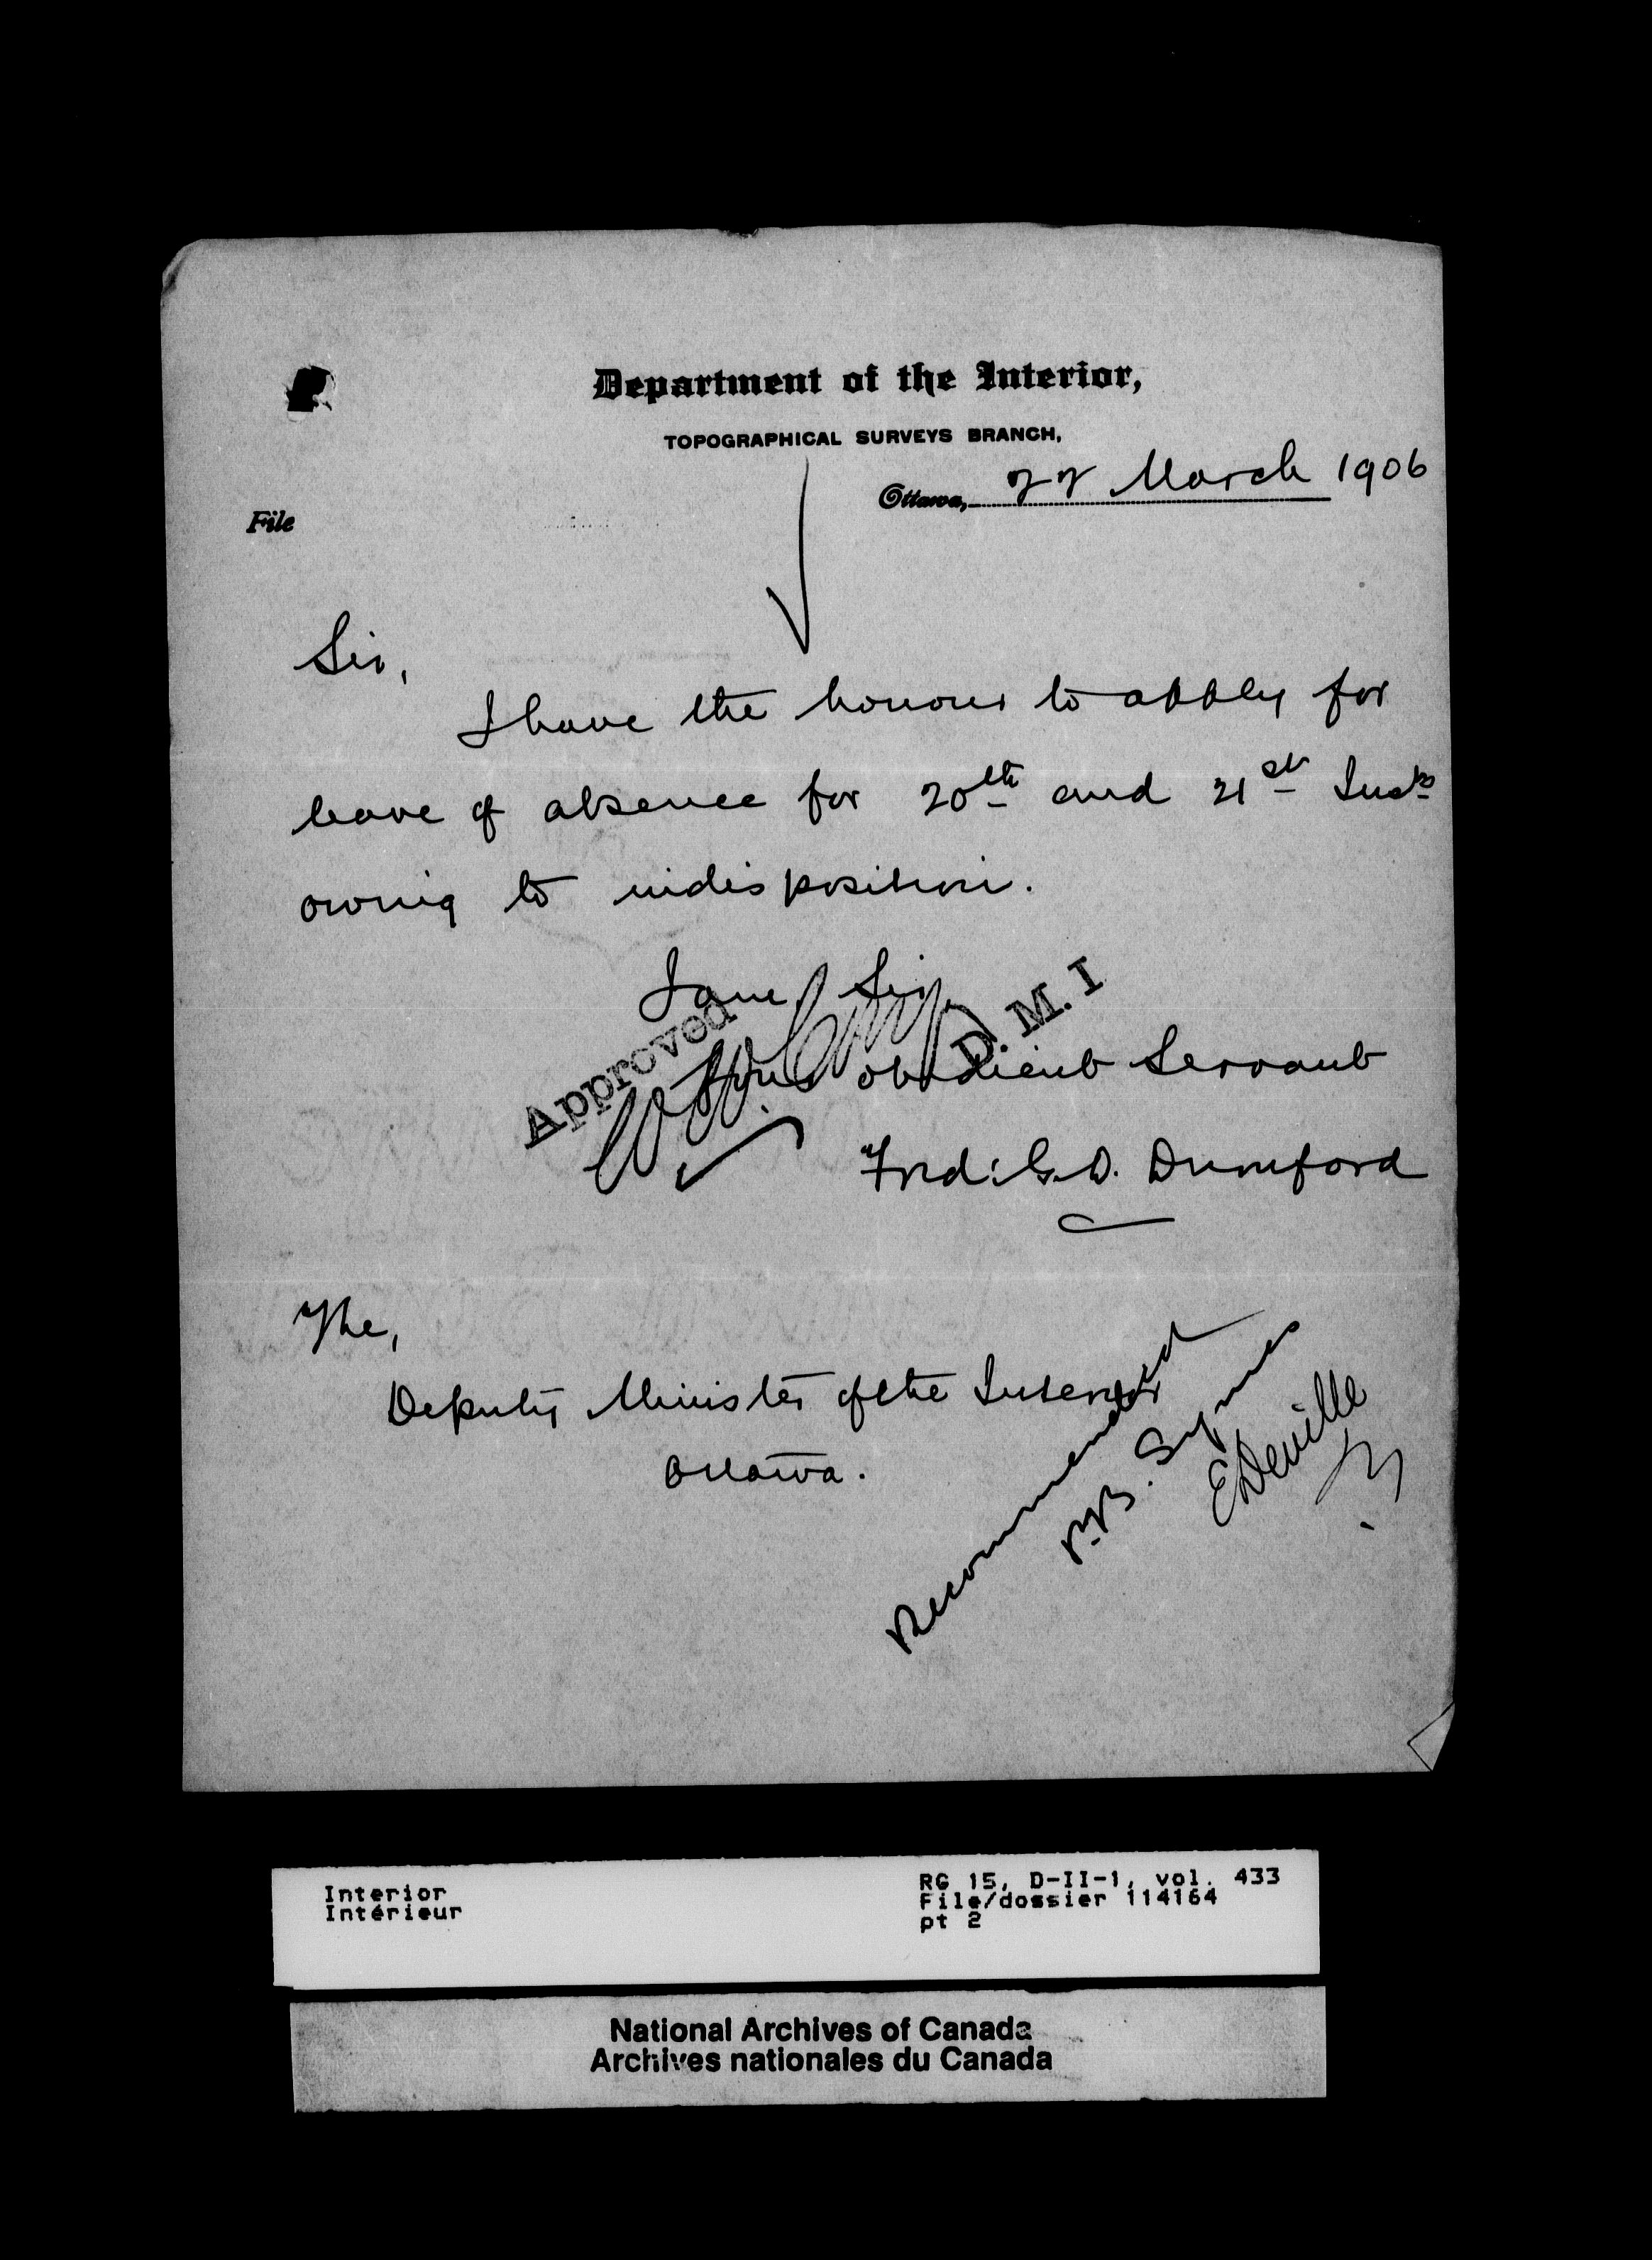 Department of the Interior,
TOPOGRAPHICAL SURVEYS BRANCH,
Ottawa, 22 March 1906
File
Sir,
I have the honour to apply for
leave of absence for 20th and 21st Insts
owing to indisposition.
I am, Sir,
Approved
D. M. I
Your obedient Servant
Fred: G. D. Durnford
The,
Deputy Minister of the Interior
Ottawa.
Recommended
P.B. Symes
E Deville
Interior
Intérieur
RG 15, D-II-1, vol. 433
File/dossier 114164
pt 2
National Archives of Canada
Archives nationales du Canada